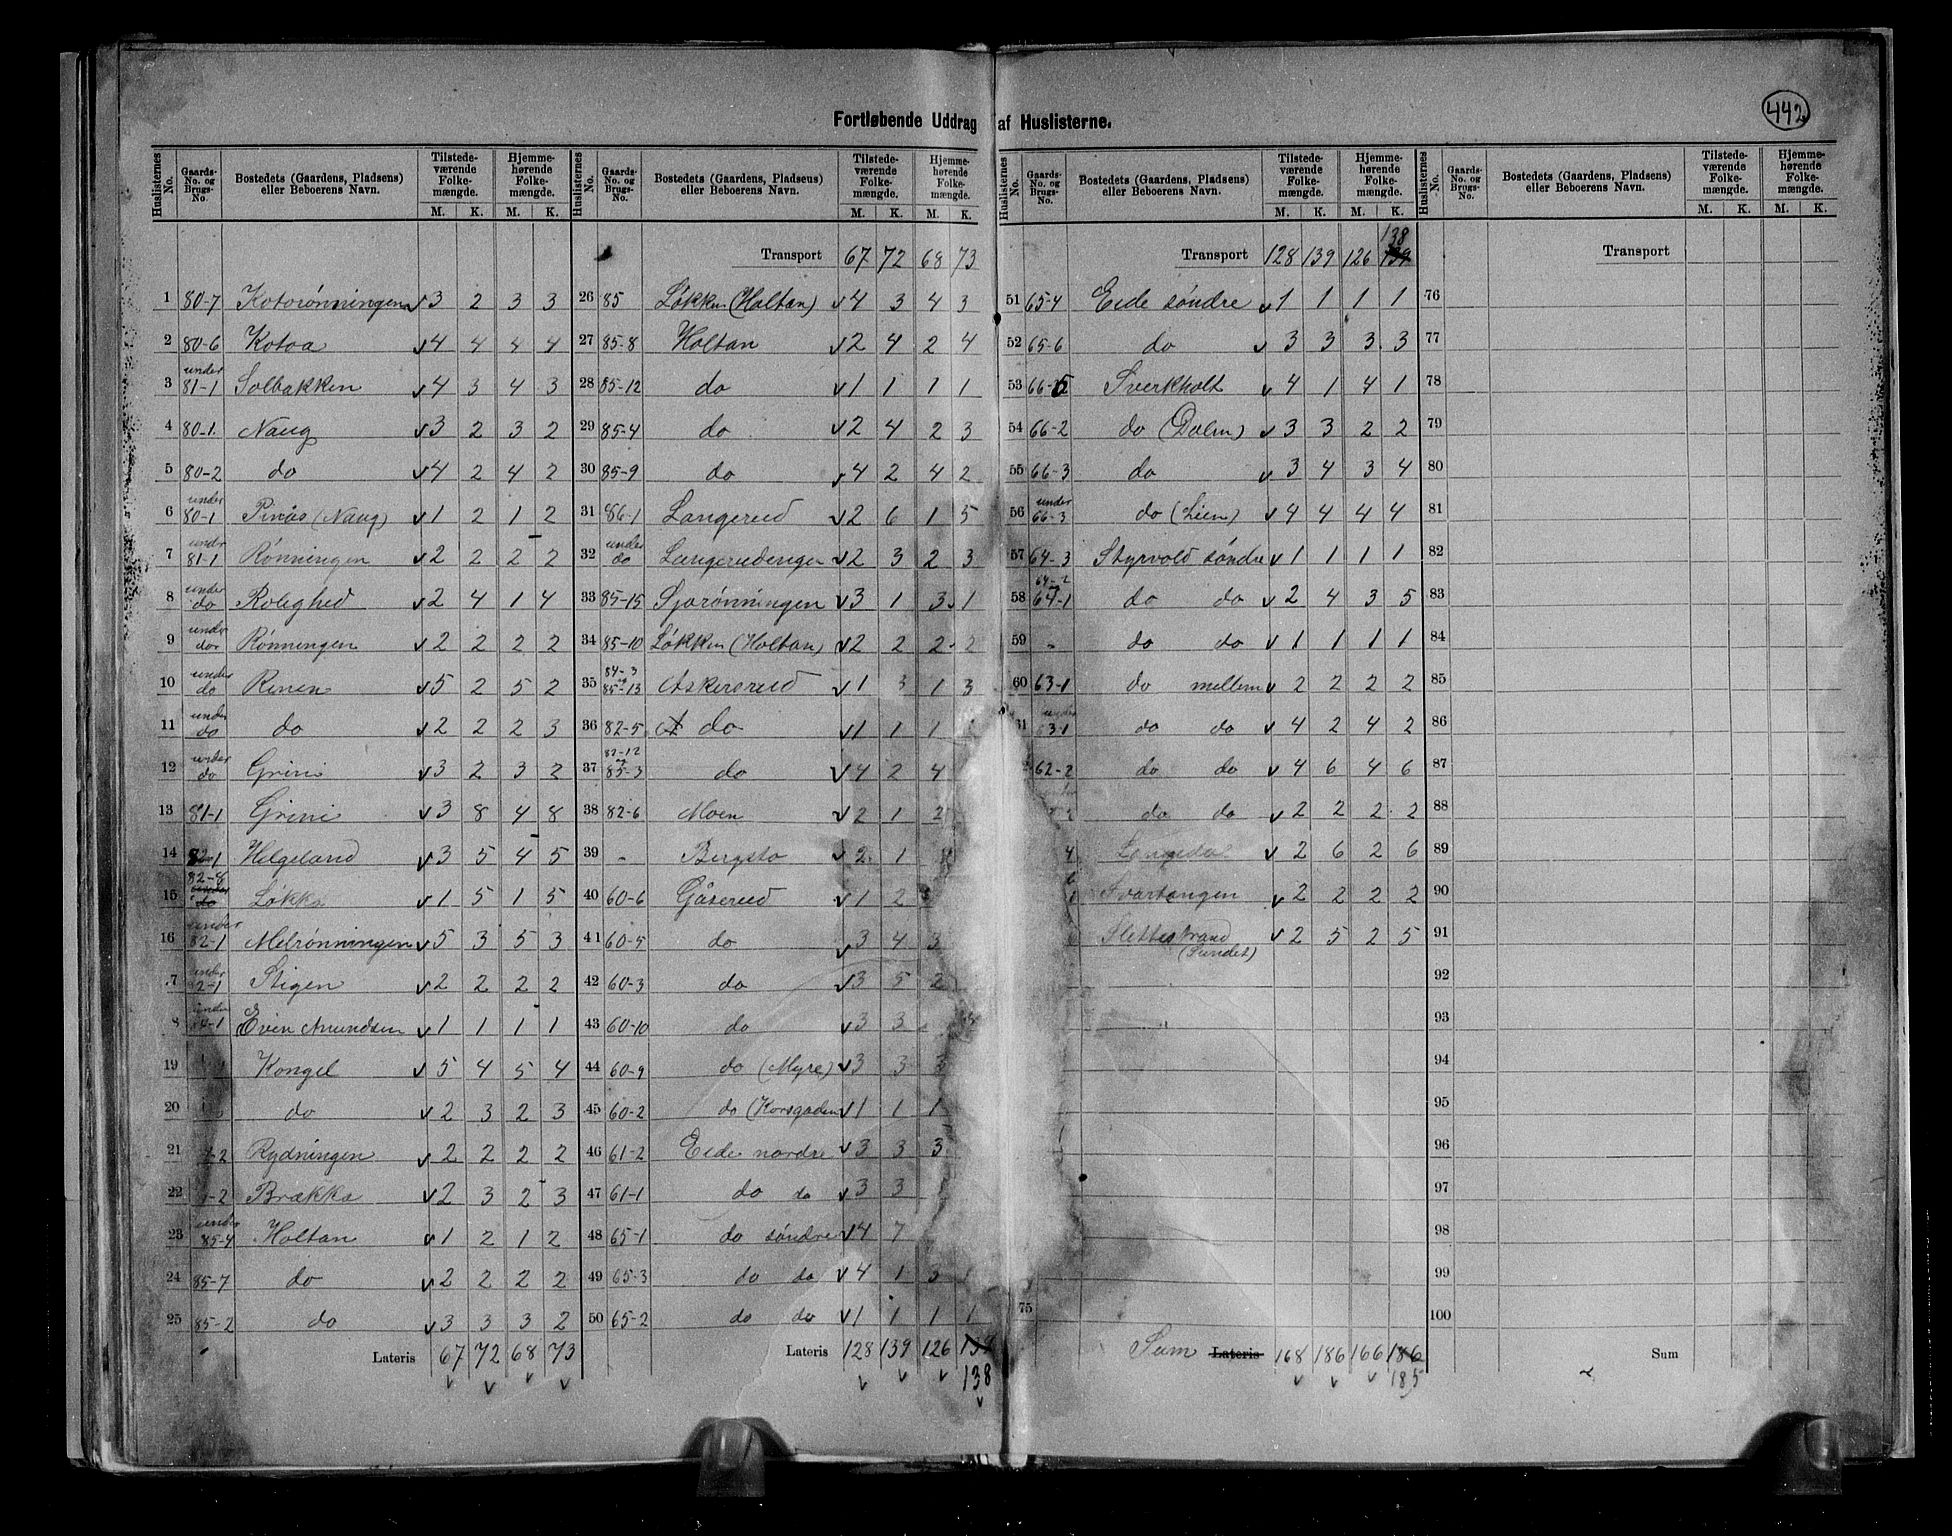 442
Fortløbende Uddrag af Huslisterne.
Huslisternes No. Gaards-No. og Brugs-No. Bostedets (Gaardens, Pladsens) eller Beboerens Navn. Tilstedeværende Folkemængde. M. K. Hjemmehørende Folkemængde. M. K.
1 80-7 Kotorønningen 3 2 3 3
2 80-6 Kotoa 4 4 4 4
3 under 81-1 Solbakken 4 3 4 3
4 80-1 Naug 3 2 3 2
5 80-2 do 4 2 4 2
6 under 80-1 Pinås (Naug) 1 2 1 2
7 under 81-1 Rønningen 2 2 2 2
8 under do Rolighed 2 4 1 4
9 under do Rønningen 2 2 2 2
10 under do Renen 5 2 5 2
11 under do do 2 2 2 3
12 under do Grini 3 2 3 2
13 81-1 Grini 3 8 4 8
14 82-1 Helgeland 3 5 4 5
15 82-8 Løkka 1 5 1 5
16 under 82-1 Melrønningen 5 3 5 3
under Stigen 2 2 2 2
under Even Amundsen 1 1 1 1
19 Kongel 5 4 5 4
20 do 2 3 2 3
21 Rydningen 2 2 2 2
22 Brækka 2 3 2 3
23 under 85-4 Holtan 1 2 1 2
24 85-7 do 2 2 2 2
25 85-2 do 3 3 3 2
Lateris 67 72 68 73
Huslisternes No. Gaards-No. og Brugs-No. Bostedets (Gaardens, Pladsens) eller Beboerens Navn. Tilstedeværende Folkemængde. M. K. Hjemmehørende Folkemængde. M. K.
Transport 67 72 68 73
26 85 Løkken (Holtan) 4 3 4 3
27 85-8 Holtan 2 4 2 4
28 85-12 do 1 1 1 1
29 85-4 do 2 4 2 3
30 85-9 do 4 2 4 2
31 86-1 Langerud 2 6 1 5
32 under do Langerudengen 2 3 2 3
33 85-15 Sjorønningen 3 1 3 1
34 85-10 Løkken (Holtan) 2 2 2 2
35 84-3 85-13 Askerørud 1 3 1 3
36 82-5 do 1 1 1
37 82-12 85-3 do 4 2 4
38 82-6 Moen 2 1 2
39 Bergsto 2 1
40 60-6 Gåserud 1 2
41 60-5 do 3 4 3
42 60-3 do 3 5 2
43 60-10 do 3 3
44 60-9 do (Myre) 3 3 3
45 60-2 do (Korsgaden 1 1 1
46 61-2 Eide nordre 3 3 3
47 61-1 do do 3 3
48 65-1 do søndre 4 7
49 65-3 do do 4 1 3
50 65-2 do do 1 1 1 1
Lateris 128 139 126 139
138
Huslisternes No. Gaards-No. og Brugs-No. Bostedets (Gaardens, Pladsens) eller Beboerens Navn. Tilstedeværende Folkemængde. M. K. Hjemmehørende Folkemængde. M. K.
138
Transport 128 139 126 139
51 65-4 Eide søndre 1 1 1 1
52 65-6 do 3 3 3 3
53 66- Sverkholt 4 1 4 1
54 66-2 do (Dalen) 3 3 2 2
55 66-3 do 3 4 3 4
56 under 66-3 do (Lien) 4 4 4 4
57 64-3 Styrvold søndre 1 1 1 1
58 64-2 64-1 do do 2 4 3 5
59 do do 1 1 1 1
60 63-1 do mellem 2 2 2 2
under 63-1 do do 4 2 4 2
62-2 do do 4 6 4 6
do do 2 2 2 2
2 6 2 6
Svartangen 2 2 2 2
Slettestrand (Sundet) 2 5 2 5
75
Sum Lateris 168 186 166 186
185
Huslisternes No. Gaards-No. og Brugs-No. Bostedets (Gaardens, Pladsens) eller Beboerens Navn. Tilstedeværende Folkemængde. M. K. Hjemmehørende Folkemængde. M. K.
Transport
76
77
78
79
80
81
82
83
84
85
86
87
88
89
90
91
92
93
94
95
96
97
98
99
100
Sum